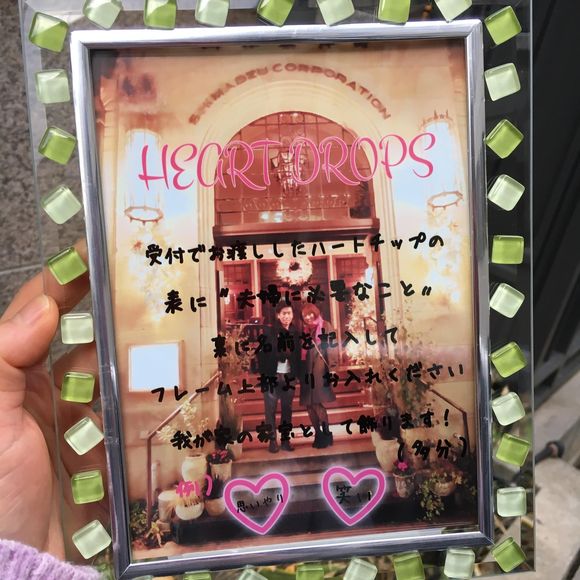 SHIMADZU CORPORATION
HEART DROPS
受付でお渡ししたハートチップの
表に〝夫婦に必要なこと〟
裏に名前を記入して
フレーム上部よりお入れください
我が家の家宝として飾ります!
(多分)
例)
思いやり 笑い